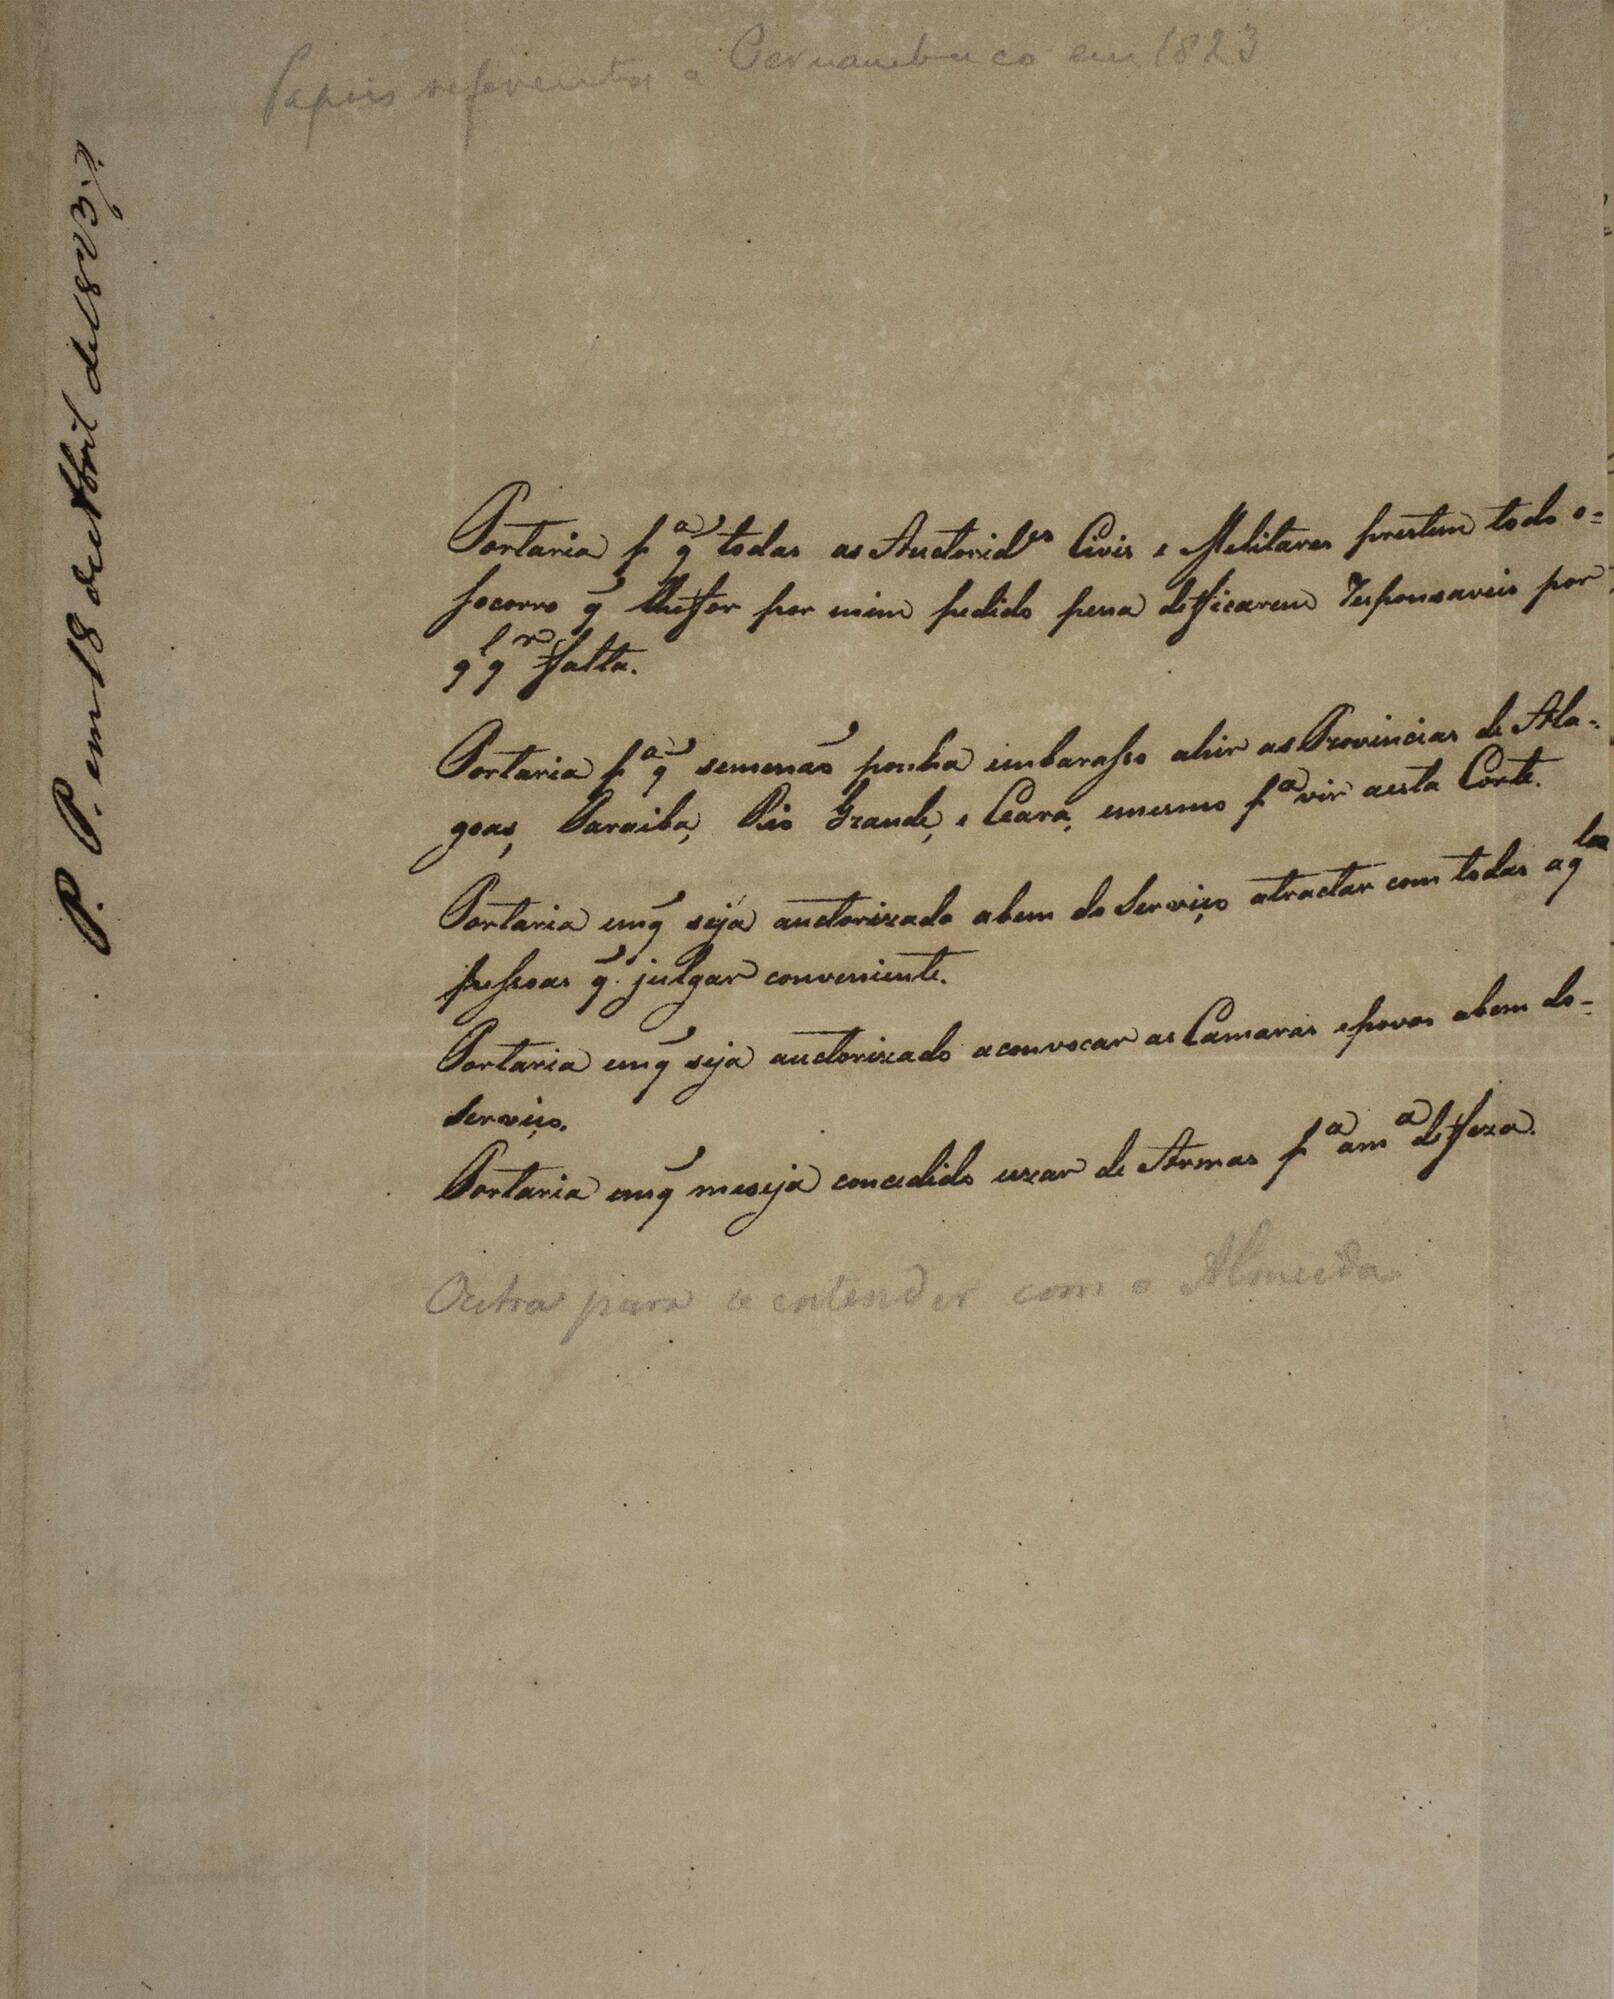 Papeis referentes a Pernambuco em 1823
P. P. em 18 de Abril de 1823.
Portaria p.ª q̃ todas as Auctorid.es Civis e Melitares prestem todo o=
socorro q̃ lhefor por mim pedido pena deficarem responsaveis por
q l q r falta.
Portaria p.ª q̃ semenaõ ponha embarasso ahir as Provincias de Ala=
goas, Paraiba, Rio Grande, e Ceara, emesmo p.ª vir aesta Corte.
Portaria emq̃ seja auctorizado abem do Serviço atractar com todas aq.las
pessoas q̃ julgar conveniente.
Portaria emq̃ seja auctorizado aconvocar as Camaras epovos abem do=
Serviço.
Portaria emq̃ meseja concedido uzar de Armas p.ª am.ª defeza.
Outra para se entender com o Almeida